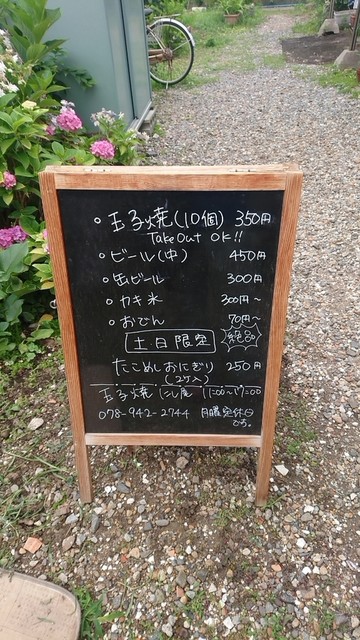 ・玉子焼(10個) 350円
Take Out OK!!
・ビール(中) 450円
・缶ビール 300円
・カキ氷 300円〜
・おでん 70円〜
土日限定 絶品
たこめしおにぎり 250円
(2ケ入)
玉子焼 にし尾 11:00〜17:00
078-942-2744 月曜定休日
です。